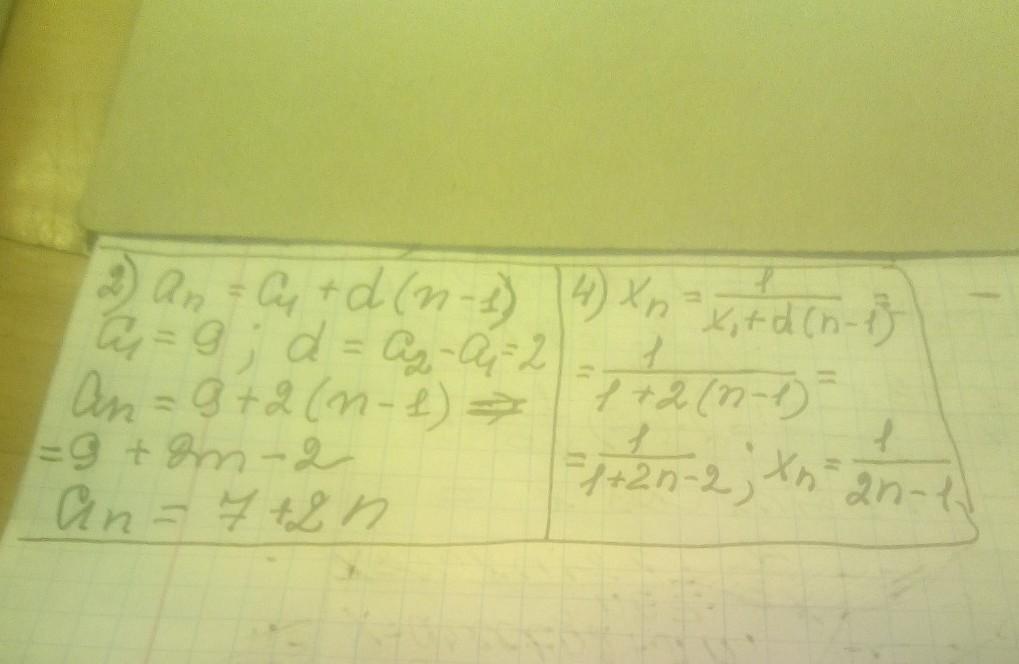 2) aₙ = a₁ + d(n-1)
a₁ = 9; d = a₂-a₁=2
aₙ = 9+2(n-1) ⇒
=9 + 2n-2
aₙ = 7+2n
4) xₙ = 1/(x₁+d(n-1)) =
= 1/(1+2(n-1)) =
= 1/(1+2n-2); xₙ = 1/(2n-1)